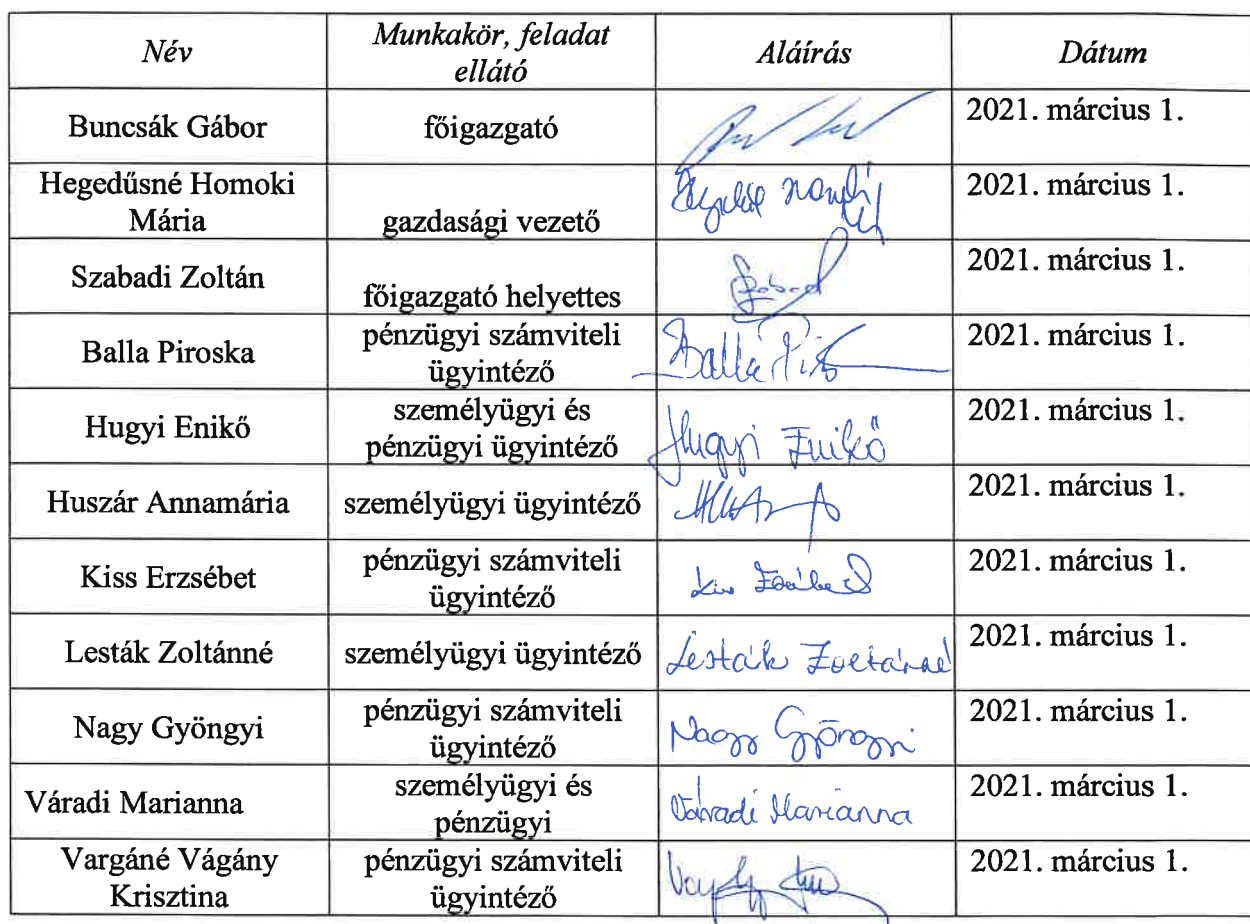 Név
Munkakör, feladat
ellátó
Aláírás
Dátum
Buncsák Gábor
főigazgató
2021. március 1.
Hegedűsné Homoki
Mária
gazdasági vezető
2021. március 1.
Szabadi Zoltán
főigazgató helyettes
Szabad
2021. március 1.
Balla Piroska
pénzügyi számviteli
ügyintéző
Balla Pir
2021. március 1.
Hugyi Enikő
személyügyi és
pénzügyi ügyintéző
Hugyi Enikő
2021. március 1.
Huszár Annamária
személyügyi ügyintéző
2021. március 1.
Kiss Erzsébet
pénzügyi számviteli
ügyintéző
Kiss Erzsébet
2021. március 1.
Lesták Zoltánné
személyügyi ügyintéző
Lesták Zoltánné
2021. március 1.
Nagy Gyöngyi
pénzügyi számviteli
ügyintéző
Nagy Gyöngyi
2021. március 1.
Váradi Marianna
személyügyi és
pénzügyi
Váradi Marianna
2021. március 1.
Vargáné Vágány
Krisztina
pénzügyi számviteli
ügyintéző
2021. március 1.